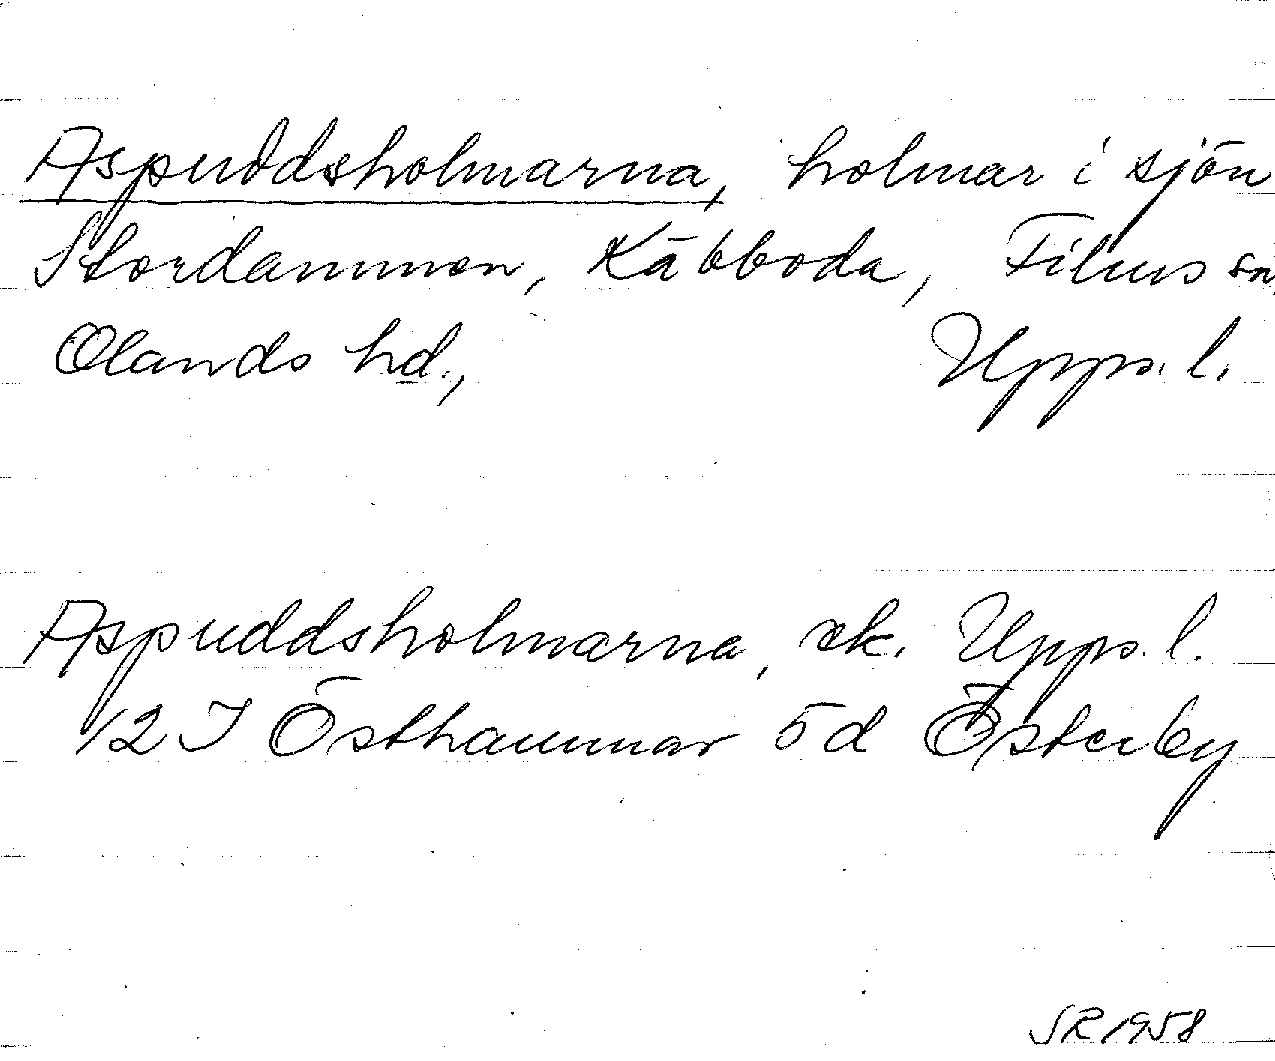 Aspuddsholmarna, holmar i sjön
Stordammen, Käbboda, Films sn,
Olands hd., Upps. l.
Aspuddsholmarna, ek. Upps. l.
12 I Östhammar 5d Österby
SR 1958